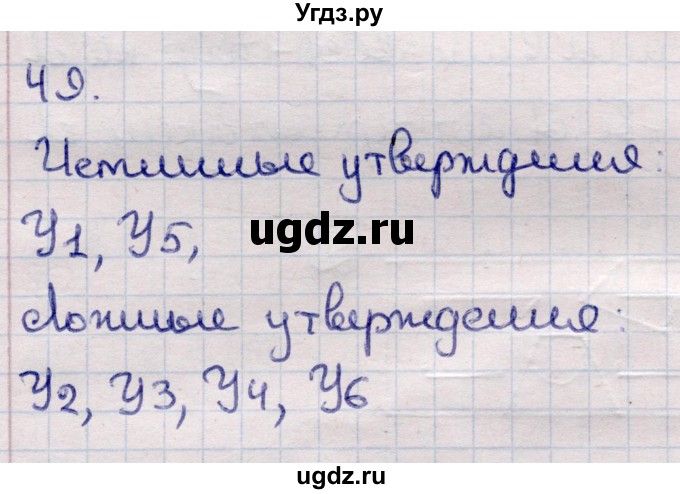 Угдз.ру
49.
Истинные утверждения:
У1, У5,
ugdz.ru
Ложные утверждения:
У2, У3, У4, У6
ugdz.ru